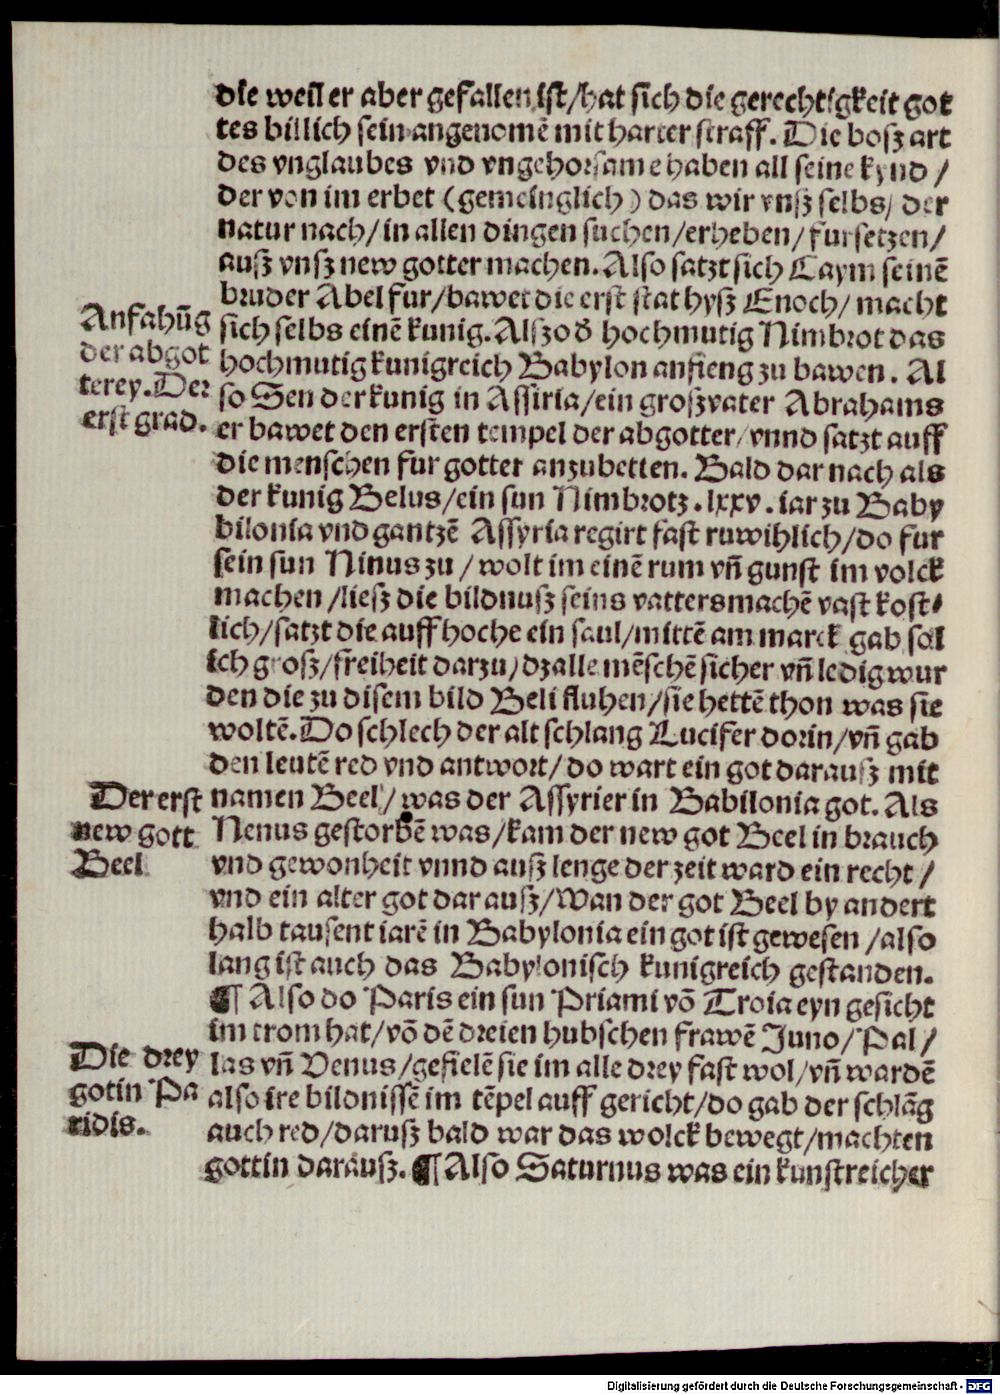 die weil er aber gefallen ist/hat sich die gerechtigkeit got
tes billich sein angenomē mit harter straff. Die bosz art
des vnglaubes vnd vngehorsame haben all seine kynd /
der von im erbet (gemeinglich) das wir vnsz selbs/ der
natur nach/in allen dingen suchen/erheben/fursetzen/
ausz vnsz new gotter machen. Also satzt sich Caym seinē
bruder Abel fur/bawet die erst stat hysz Enoch/ macht
Anfahūg
der abgot
terey. Der
erst grad.
sich selbs einē kunig. Alszo d̄ hochmutig Nimbrot das
hochmutig kunigreich Babylon anfieng zu bawen. Al
so Sen der kunig in Assiria/ein groszvater Abrahams
er bawet den ersten tempel der abgotter/vnnd satzt auff
die menschen fur gotter anzubetten. Bald dar nach als
der kunig Belus/ein sun Nimbrotz .lxxv. iar zu Baby
bilonia vnd gantzē Assyria regirt fast ruwihlich/do fur
sein sun Ninus zu / wolt im einē rum vn̄ gunst im volck
machen /liesz die bildnusz seins vatters machē vast kost⸗
lich/satzt die auff hoche ein saul/mittē am marck gab sol
ich grosz/freiheit darzu/dz alle mēschē sicher vn̄ ledig wur
den die zu disem bild Beli fluhen/sie hettē thon was sie
woltē. Do schlech der alt schlang Lucifer dorin/vn̄ gab
den leutē red vnd antwort/do wart ein got darausz mit
Der erst
new gott
Beel
namen Beel/ was der Assyrier in Babilonia got. Als
Nenus gestorbē was/kam der new got Beel in brauch
vnd gewonheit vnnd ausz lenge der zeit ward ein recht /
vnd ein alter got dar ausz/Wan der got Beel by andert
halb tausent iarē in Babylonia ein got ist gewesen /also
lang ist auch das Babylonisch kunigreich gestanden.
¶ Also do Paris ein sun Priami vō Troia eyn gesicht
im trom hat/vō dē dreien hubschen frawē Juno/Pal/
Die drey
gotin Pa
ridis.
las vn̄ Venus/gefielē sie im alle drey fast wol/vn̄ wardē
also ire bildnissē im tēpel auff gericht/do gab der schlāg
auch red/darusz bald war das wolck bewegt/machten
gottin darausz. ¶ Also Saturnus was ein kunstreicher
Digitalisierung gefördert durch die Deutsche Forschungsgemeinschaft - DFG